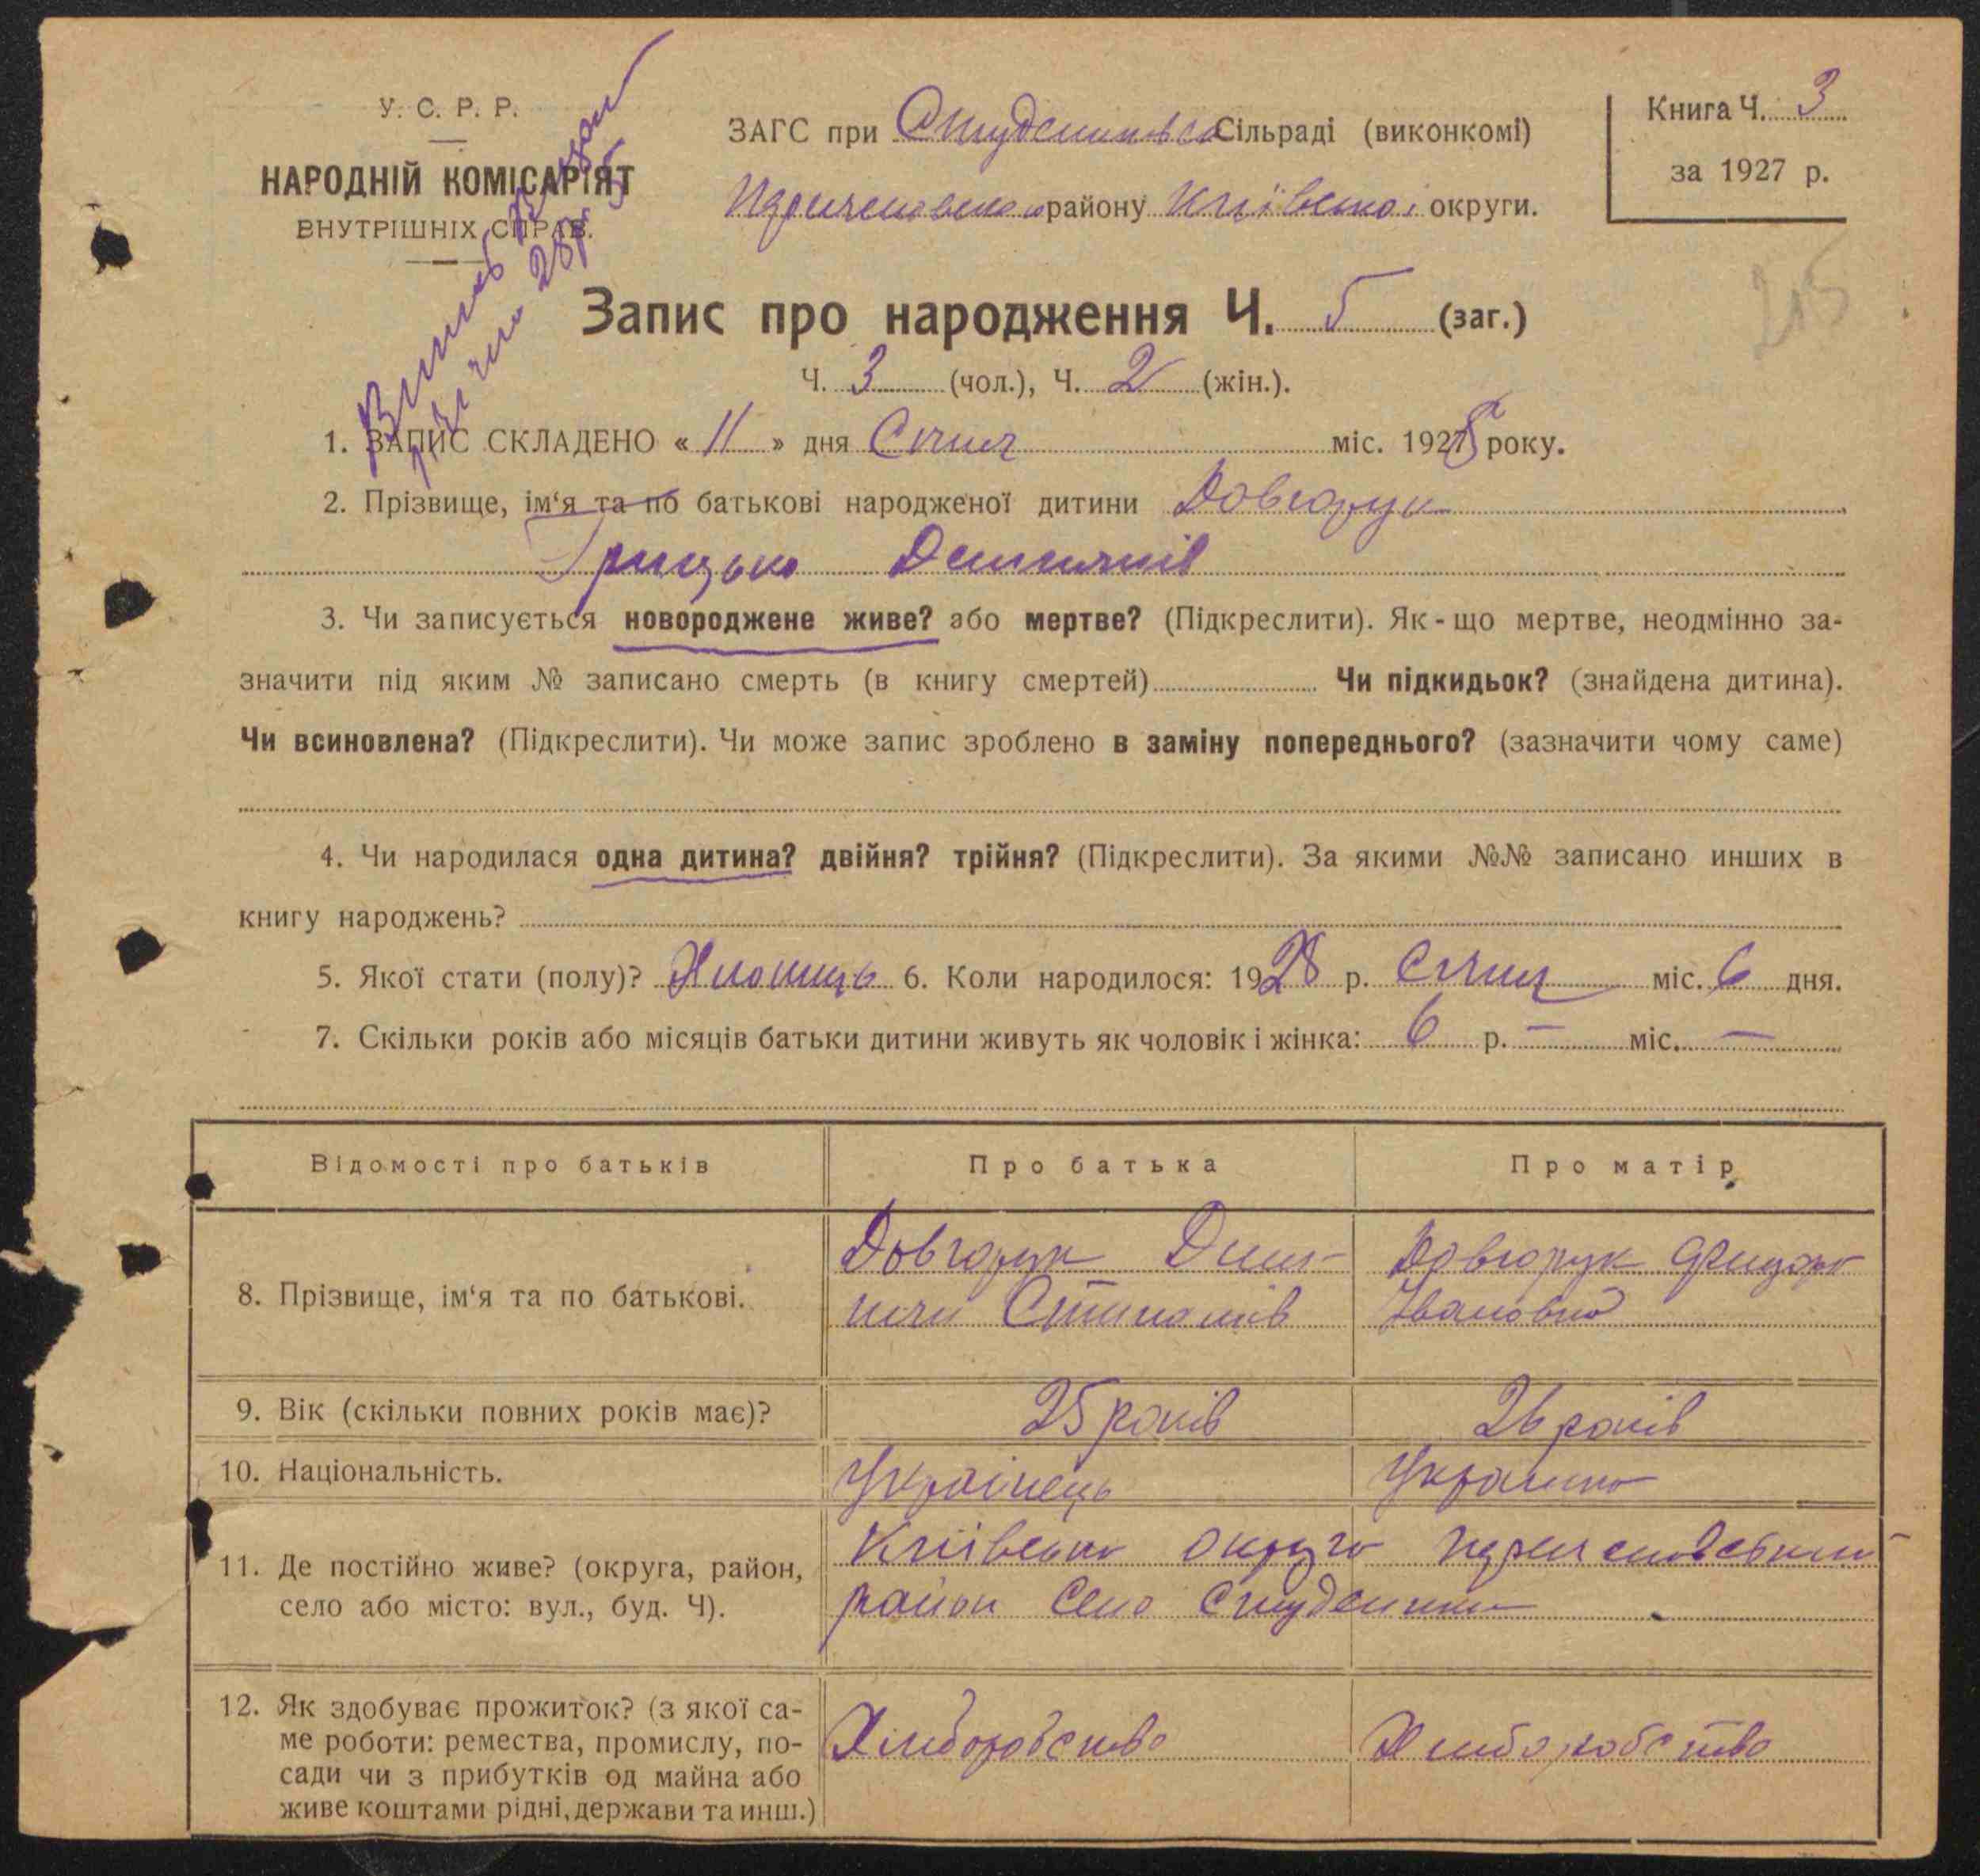 У. С. Р. Р.
НАРОДНІЙ КОМІСАРІЯТ
ВНУТРІШНІХ СПРАВ.
ЗАГС при Студениківск Сільраді (виконкомі)
району Київської округи.
Книга Ч. 3
за 1927 р.
215
Запис про народження Ч. 5 (заг.)
Ч. 3 (чол.), Ч. 2 (жін.).
1. ЗАПИС СКЛАДЕНО « 11 » дня Січня міс. 1928 року.
2. Прізвище, ім‘я та по батькові народженої дитини Довгорук
Грицько
3. Чи записується новороджене живе? або мертве? (Підкреслити). Як-що мертве, неодмінно за-
значити під яким № записано смерть (в книгу смертей) Чи підкидьок? (знайдена дитина).
Чи всиновлена? (Підкреслити). Чи може запис зроблено в заміну попереднього? (зазначити чому саме)
4. Чи народилася одна дитина? двійня? трійня? (Підкреслити). За якими №№ записано инших в
книгу народжень?
5. Якої стати (полу)? Хлопиць 6. Коли народилося: 1928 р. Січня міс. 6 дня.
7. Скільки років або місяців батьки дитини живуть як чоловік і жінка: 6 р. — міс. —
Відомості про батьків Про батька Про матір
8. Прізвище, ім‘я та по батькові. Довгорук Довгорук
Івановна
9. Вік (скільки повних років має)? 25 років 26 років
10. Національність. Українець Украинка
11. Де постійно живе? (округа, район,
село або місто: вул., буд. Ч).
Київська округа
район село Студеники
12. Як здобуває прожиток? (з якої са-
ме роботи: ремества, промислу, по-
сади чи з прибутків од майна або
живе коштами рідні, держави та инш.)
Хліборобство Хліборобство